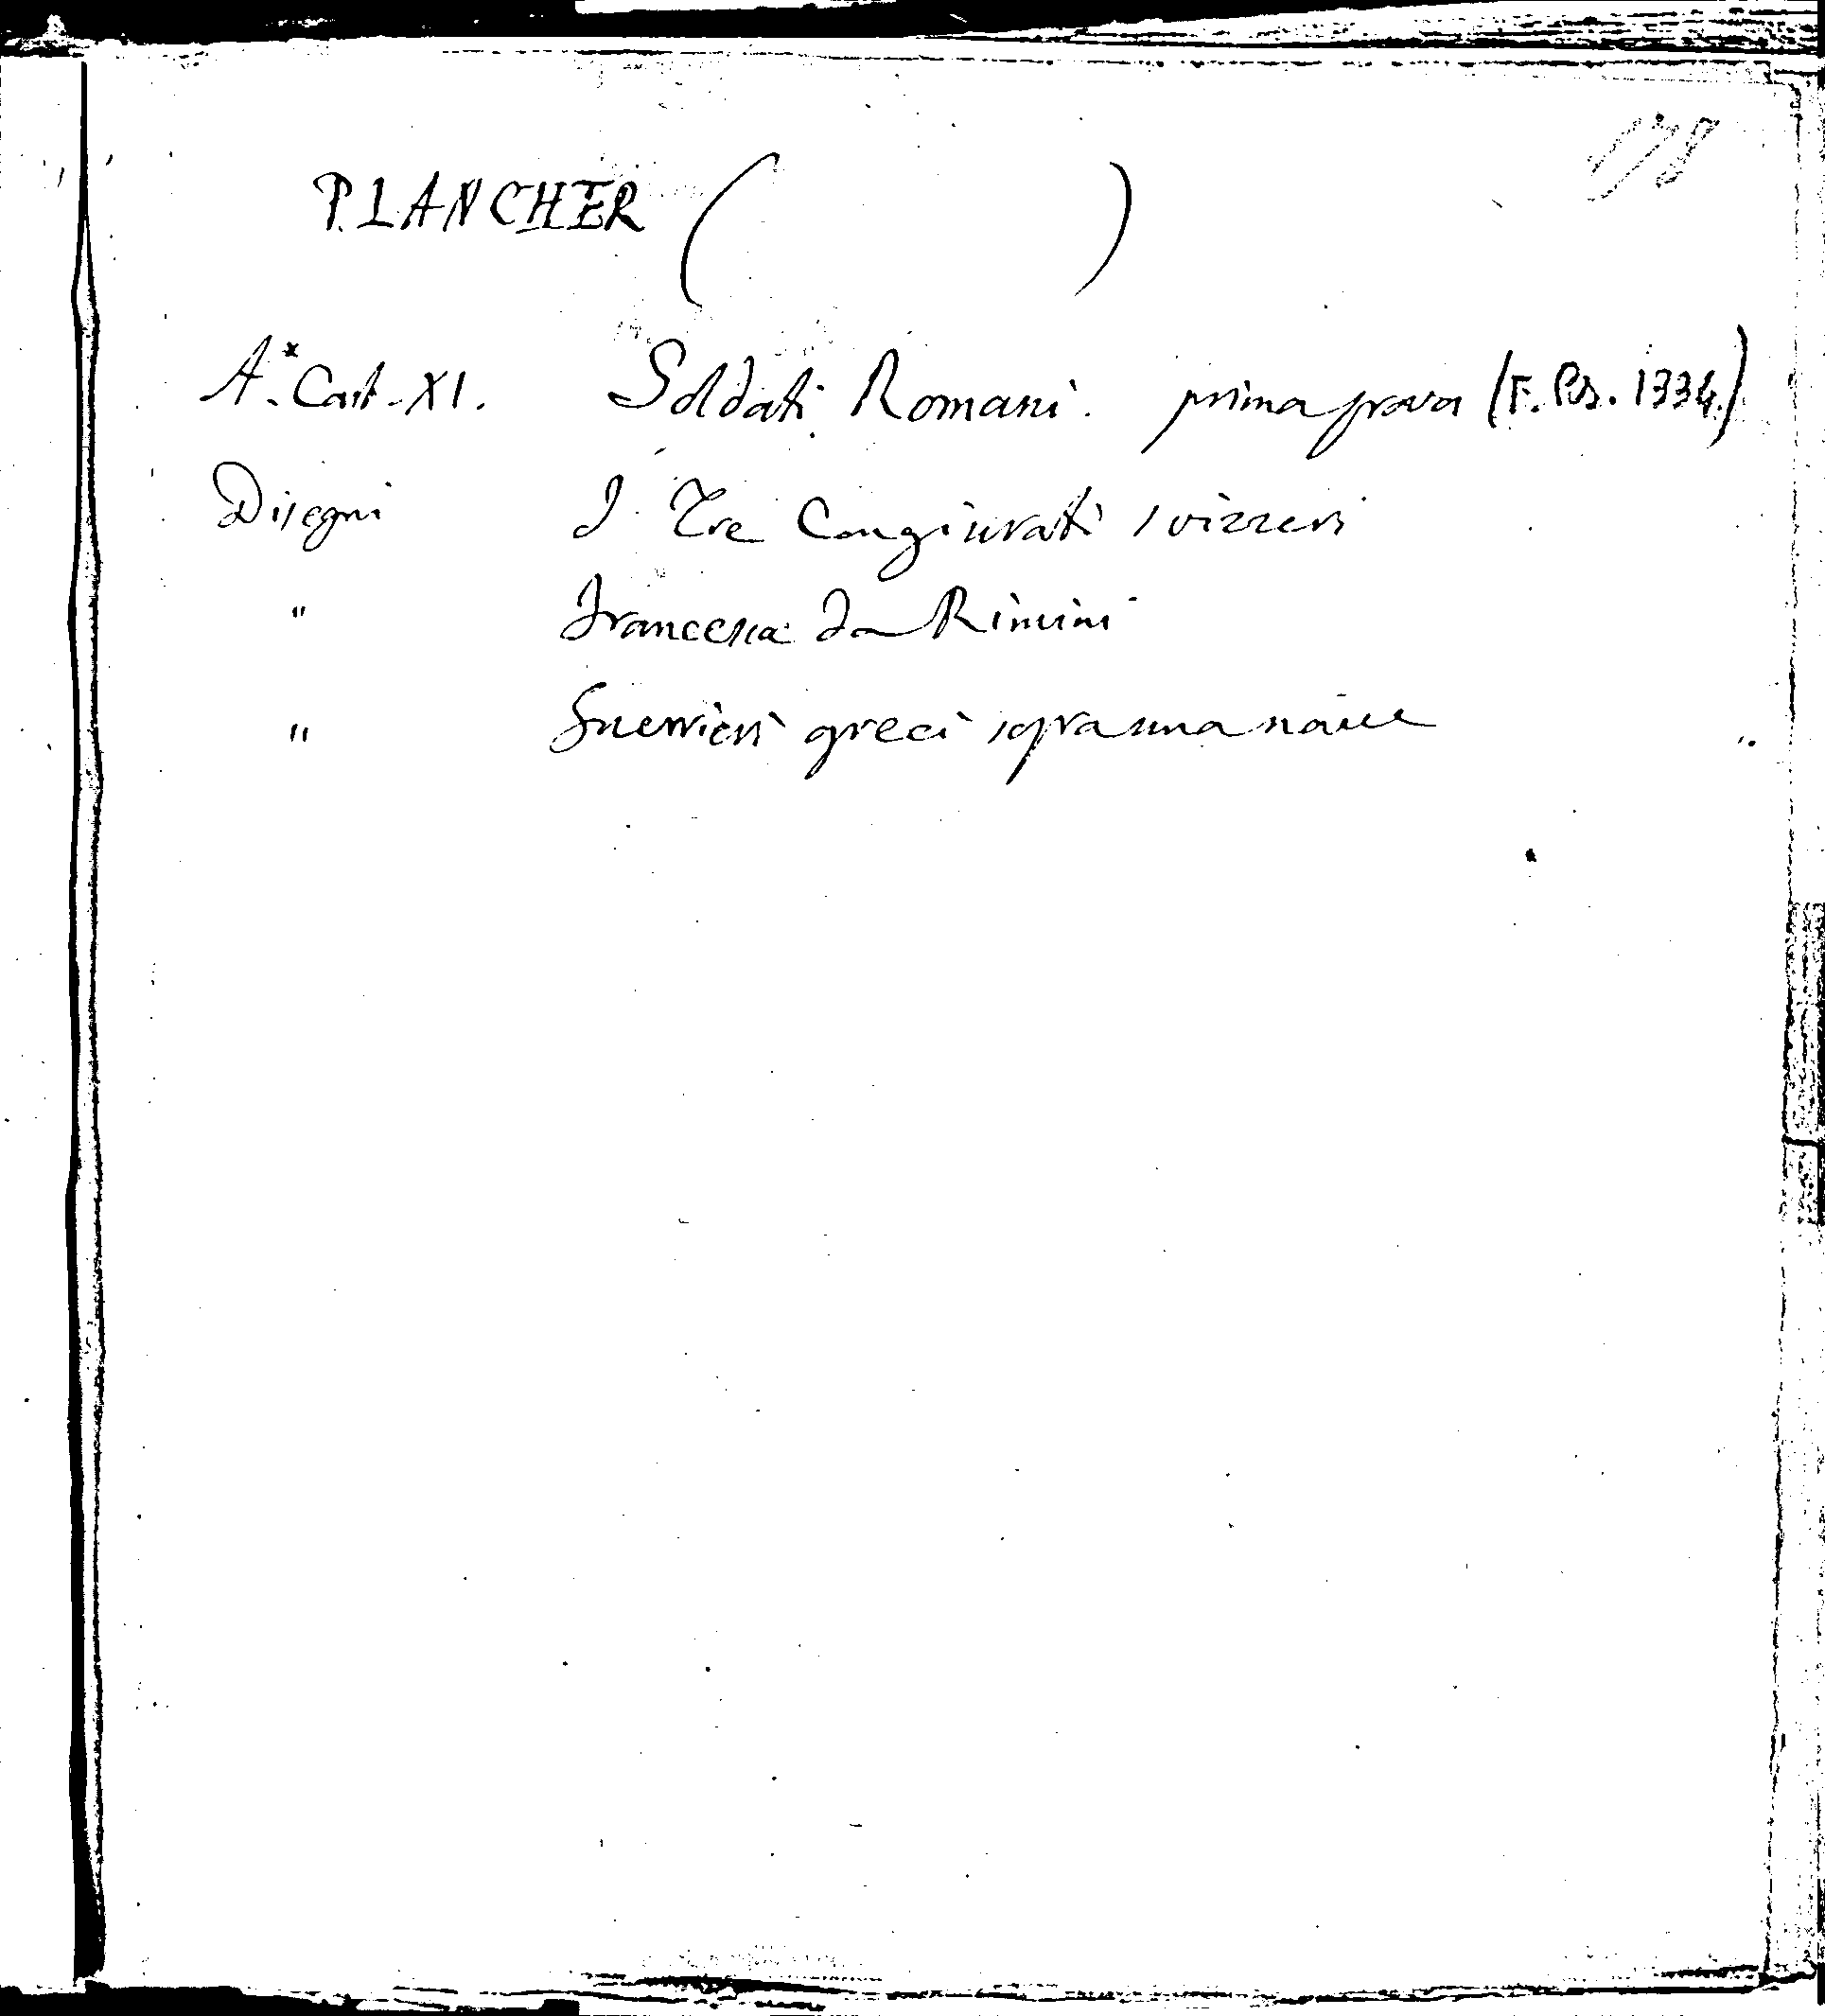 178
PLANCHER ( )
A.* Cart. XI. Soldati Romani. prima prova (F. Pos. 1334.)
Disegni I Tre Congiurati svizzeri
" Francesca da Rimini
" Guerrieri greci sopra una nave